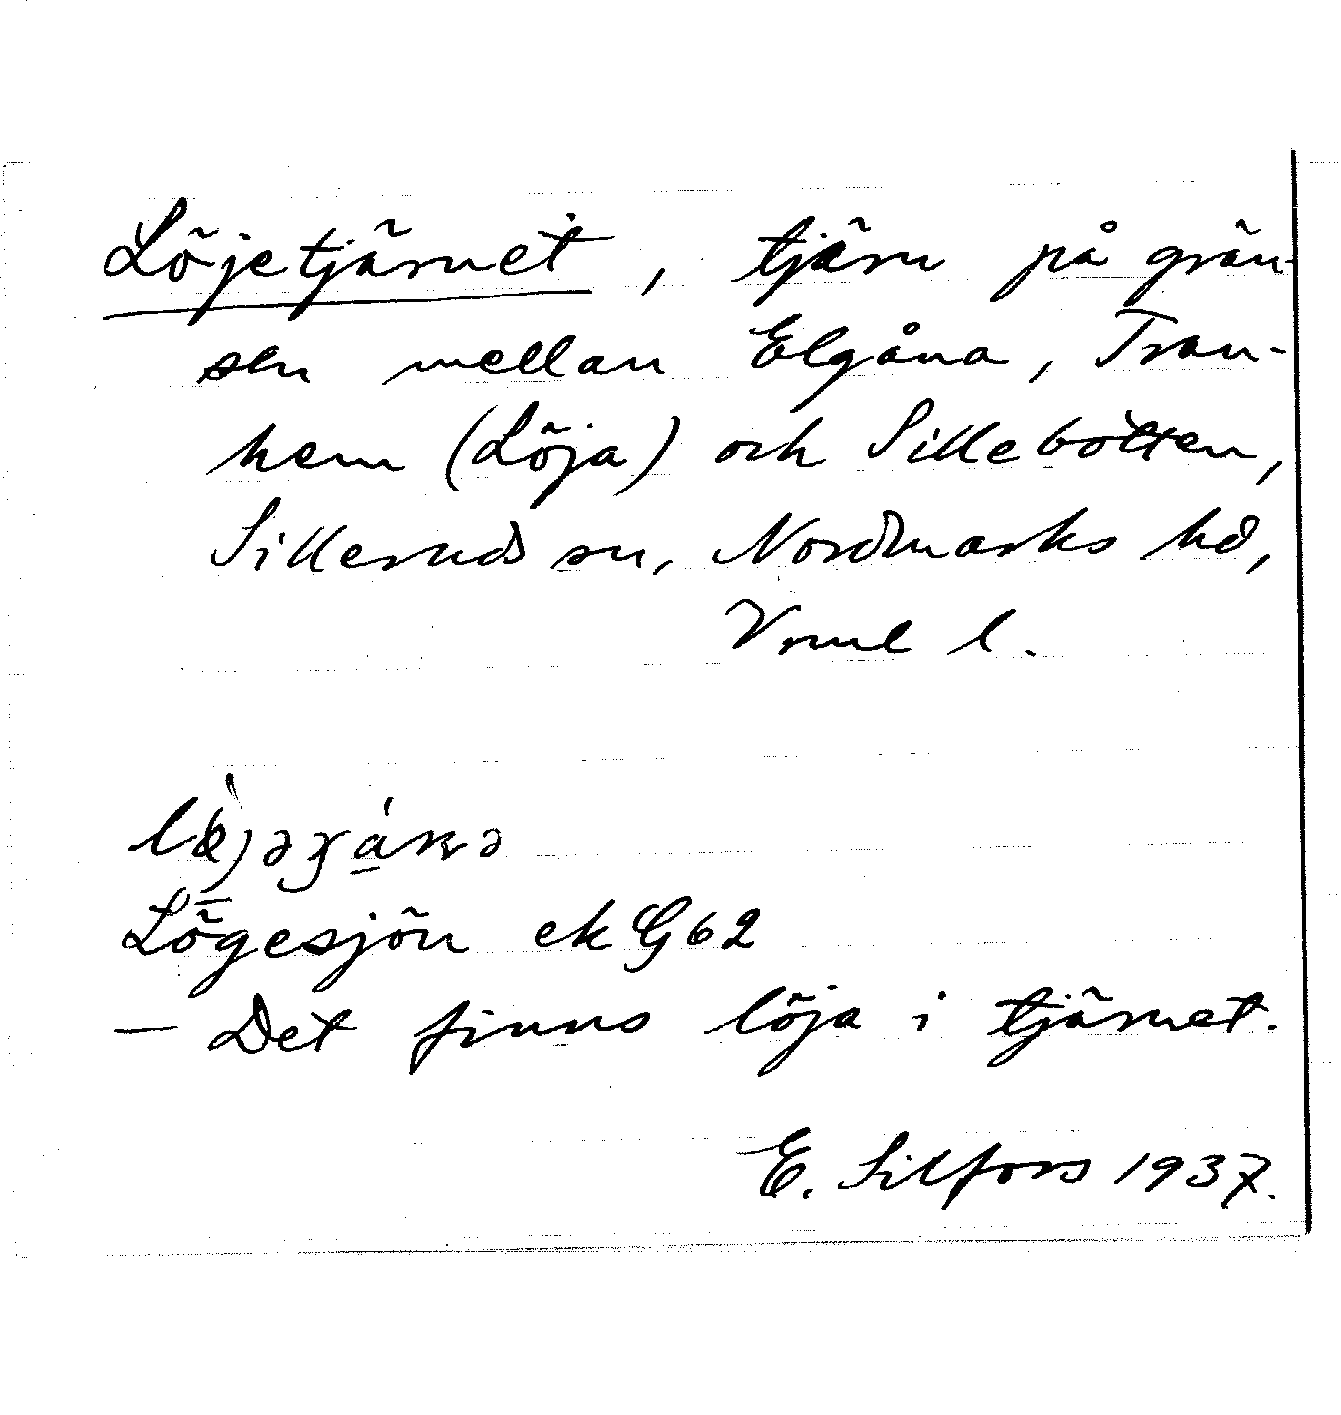 Löjetjärnet, tjärn på grän-
sen mellan Elgåna, Tran-
hem (Löja) och Sillebotten,
Sillerud sn, Nordmarks hd,
Vrml l.
Lögesjön ek G62
— Det finns löja i tjärnet.
E. Silfors 1937.